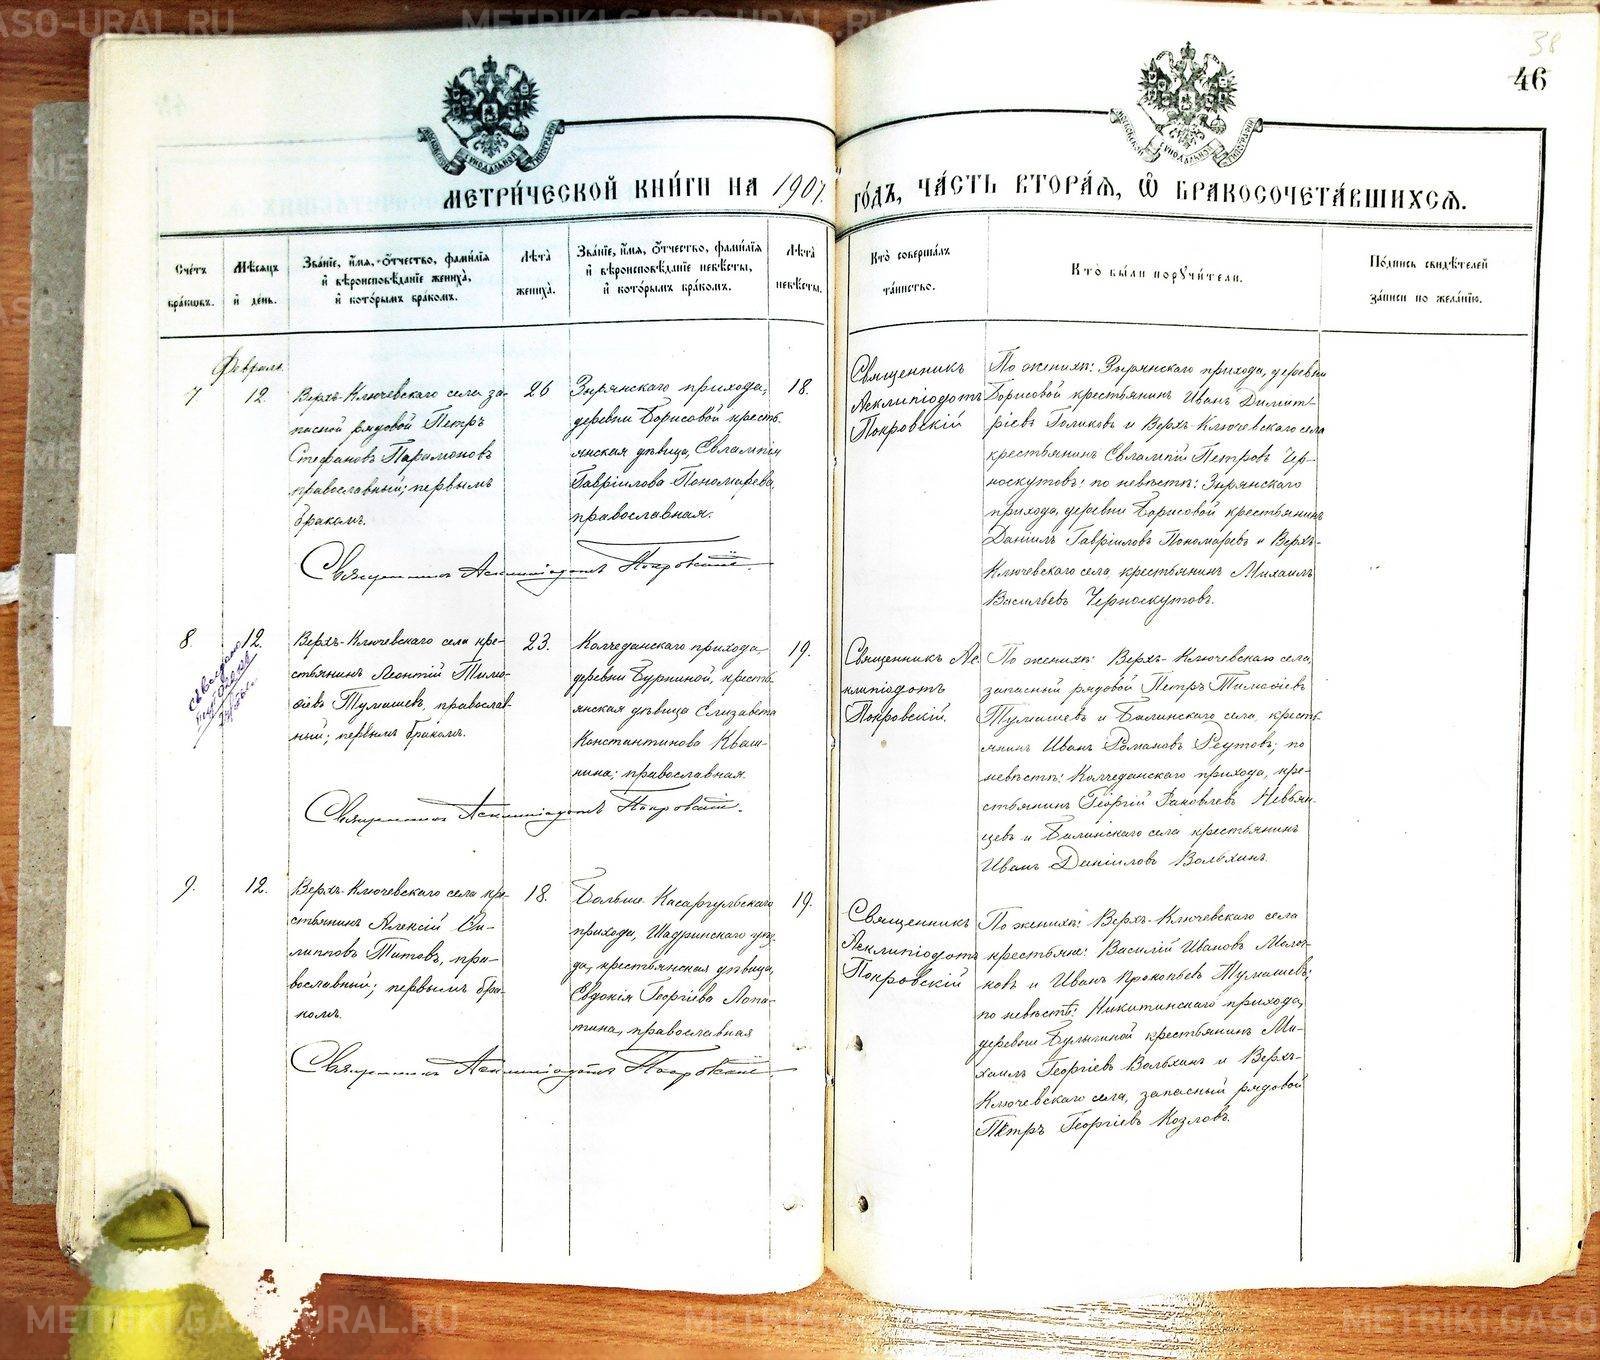 METRIKI.GASO-URAL.RU
38
46
МЕТРИ́ЧЕСКОЙ КНИ́ГИ НА 1907. ГО́ДЪ, ЧА́СТЬ ВТОРА́Я, Ѽ БРАКОСОЧЕТА́ВШИХСЯ.
Сче́тъ бра́кωвъ.
Мѣ́сяцъ и҆ де́нь.
Зва́нїе, и҆́мѧ, ѻ҆́тчество, фами́лїѧ
и҆ вѣроисповѣ́данїе жениха̀,
и҆ кото́рымъ бра́комъ.
Лѣ́та жениха̀.
Зва́нїе, и҆́мѧ, ѻ҆́тчество, фами́лїѧ
и҆ вѣроисповѣ́данїе невѣ́сты,
и҆ кото́рымъ бра́комъ.
Лѣ́та невѣ́сты.
Кто̀ соверша́лъ
та́инство.
Кто̀ бы́ли порꙋчи́тели.
По́дпись свидѣ́телей
за́писи по жела́нїю.
Февраль
7
12.
Верхъ-Ключевскаго села за-
пасной рядовой Петръ
Стефановъ Парамоновъ
православный; первымъ
бракомъ.
26
Зырянскаго прихода,
деревни Борисовой кресть-
янская дѣвица, Евлампія
Гавріилова Пономарева,
православная.
18.
Священникъ
Асклипіодотъ
Покровскій
По женихѣ: Зырянскаго прихода, деревни
Борисовой крестьянинъ Иванъ Димит-
ріевъ Голиковъ и Верхъ-Ключевскаго села
крестьянинъ Евлампій Петровъ Чер-
носкутовъ; по невѣстѣ: Зырянскаго
прихода, деревни Борисовой крестьянинъ
Даніилъ Гавріиловъ Пономаревъ и Верхъ-
Ключевскаго села, крестьянинъ Михаилъ
Васильевъ Черноскутовъ.
Священникъ Асклипіодотъ Покровскій.
8
12.
Верхъ-Ключевскаго села кре-
стьянинъ Леонтій Тимо-
ѳіевъ Тумашевъ, православ-
ный; первымъ бракомъ.
23.
Колчеданскаго прихода,
деревни Бурниной, кресть-
янская дѣвица Елизавета
Константинова Кваш-
нина; православная.
19.
Священникъ Ас-
клипіодотъ
Покровскій.
По женихѣ: Верхъ-Ключевскаго села,
запасный рядовой Петръ Тимоѳіевъ
Тумашевъ и Билинскаго села, кресть-
янинъ Иванъ Романовъ Реутовъ; по
невѣстѣ: Колчеданскаго прихода, кре-
стьянинъ Георгій Яковлевъ Невьян-
цевъ и Билинскаго села крестьянинъ
Иванъ Даніиловъ Вольхинъ.
Священникъ Асклипіодотъ Покровскій.
9.
12.
Верхъ-Ключевскаго села кре-
стьянинъ Алексій Фи-
липповъ Титовъ, пра-
вославный; первымъ бра-
комъ.
18.
Больше-Касаргульскаго
прихода, Шадринскаго уѣз-
да, крестьянская дѣвица,
Евдокія Георгіева Лопа-
тина, православная
19.
Священникъ
Асклипіодотъ
Покровскій
По женихѣ: Верхъ-Ключевскаго села
крестьяне: Василій Ивановъ Моло-
ковъ и Иванъ Прокопьевъ Тумашевъ;
по невѣстѣ: Никитинскаго прихода,
деревни Булыгиной крестьянинъ Ми-
хаилъ Георгіевъ Вольхинъ и Верхъ-
Ключевскаго села, запасный рядовой
Петръ Георгіевъ Козловъ.
Священникъ Асклипіодотъ Покровскій.
METRIKI.GASO-URAL.RU